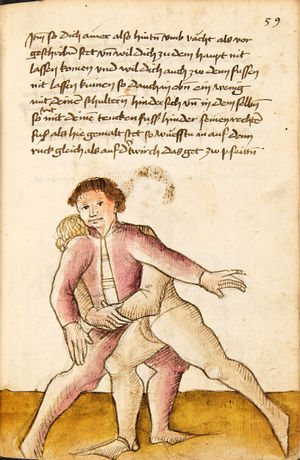 59
Itm so dich ainer also hintn umb vächt als vor
geschribn stet vn̄ wil dich zu dem haupt nit
lassen komen vnd wil dich auch zw dem fussen
nit lassen kumen so dauch an ein wenig
mit deinē schultern hindersich vn̄ in dem selbn
so trit mit deinē tencken fuss hinder seinen rechtn
fuss als hie gemalt stet so würfstu in auf den
ruck gleich als auf dē twirch das get zw peden seittn